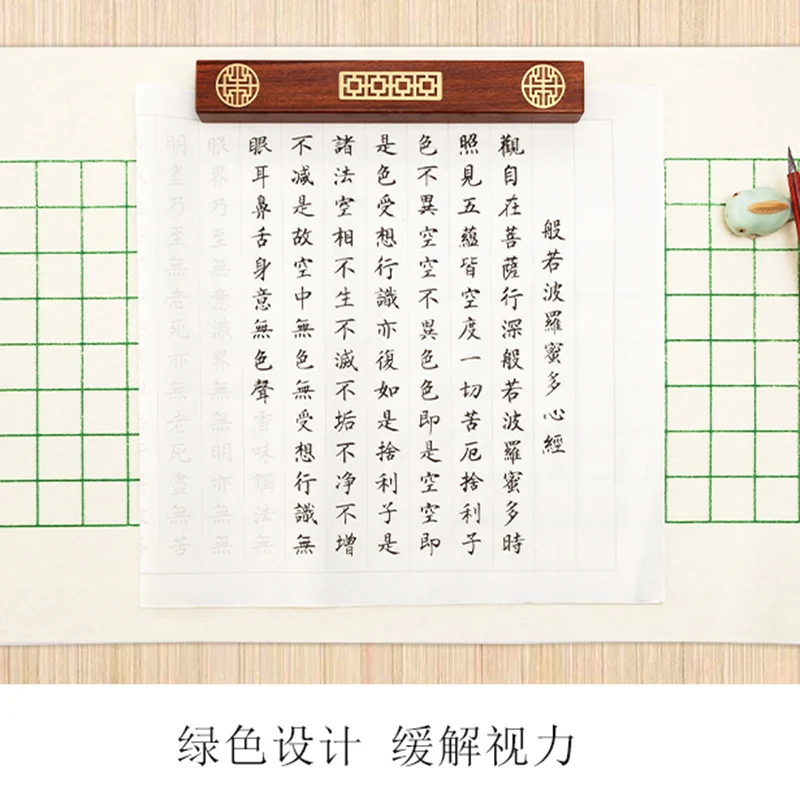 般若波羅蜜多心經
觀自在菩薩行深般若波羅蜜多時
照見五蘊皆空度一切苦厄捨利子
色不異空空不異色色即是空空即
是色受想行識亦復如是捨利子是
諸法空相不生不滅不垢不净不增
不减是故空中無色無受想行識無
眼耳鼻舌身意無色聲香味觸法無
眼界乃至無意識界無無明亦無無
明盡乃至無老死亦無老死盡無苦
绿色设计 缓解视力